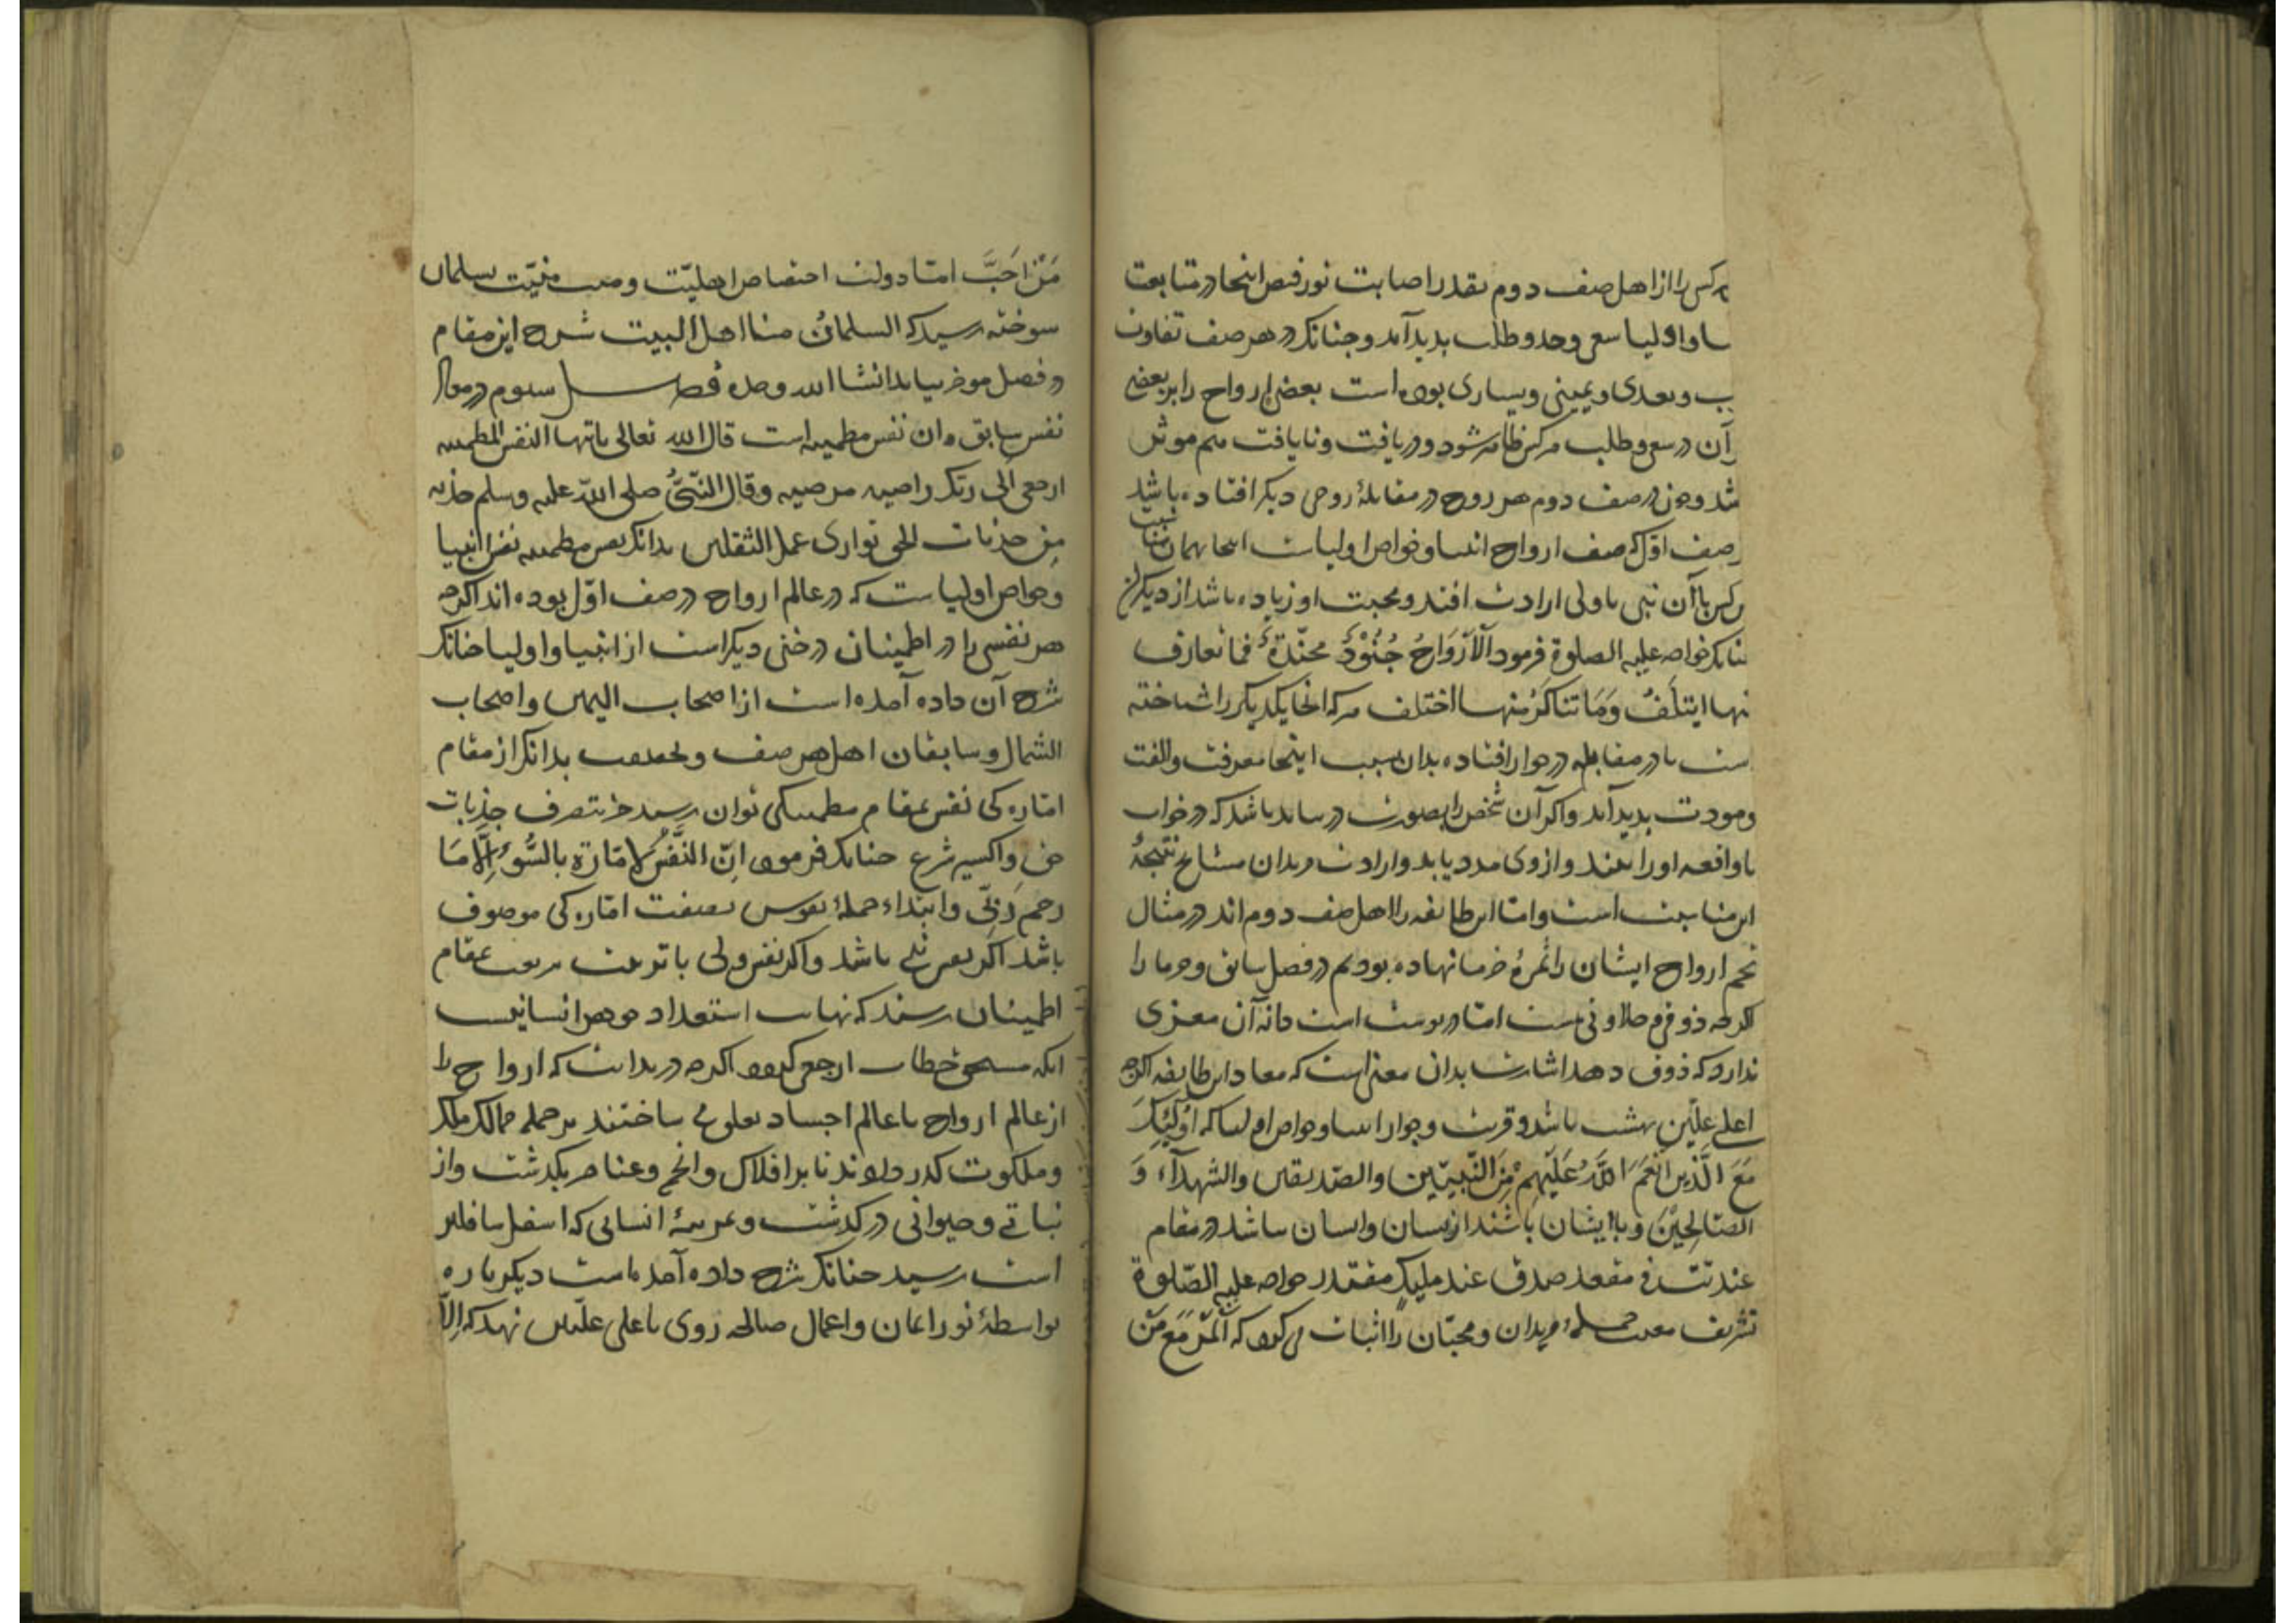 هر کس را از اهل صف دوم بقدر اصابت نور فیض اینجا در متابعت
و اولیا سعی و جد و طلب بدید آمد و چنانک در هر صف تفاوت
و بعدی و یمینی و یساری بوده است بعضی ارواح را بر بعضی
آن در سعی و طلب هر کس ظاهر شود و دریافت و نایافت هم موثر
شد و چون در صف دوم هر روح در مقابلهٔ روحی دیکر افتاده باشد
صف اول که صف ارواح انبیا و خواص اولیاست اینجا بهمان مناسبت
هر کس با آن نبی یا ولی ارادت افتد و محبت او زیاده باشد از دیکران
خواجه علیه الصلوة فرمود اَلْاَرْوَاحُ جُنُوْدٌ مجنّدَةٌ فما تعارف
منها ایتلَفَ وَمَا تناکَرَ منها اختلف هر که آنجا یکدیکر را شناخته
است یا در مقابله در جوار افتاده بدان سبب اینجا معرفت و الفت
و مودت بدید آمد و اکر آن شخص را بصورت در نیابد باشد که در خواب
یا واقعه او را بیند و از وی مدد یابد و ارادت مریدان مشایخ نتیجهٔ
این مناسبت است و اما این طایفه را اهل صف دوم اند در مثال
تخم ارواح ایشان را ثمرهٔ خرما نهاده بودیم در فصل سابق و خرما را
اکرچه ذوقی و حلاوتی هست اما در پوست است دانه آن مغزی
ندارد که ذوق دهد اشارت بدان معنی است که معاد این طایفه اکرچه
اعلی علّیین بهشت باشد و قربت و جوار انبیا و خواص اولیا که اُولٰئِکَ
مَعَ الَّذینَ اَنْعَمَ اللّٰهُ عَلَیْهِمْ مِنَ النَّبِیّین والصّدیقین والشهدآء وَ
الصّالِحیْنَ و با ایشان باشند از یسان و ایسان نباشد در مقام
عندیّت فی مقعد صدق عند ملیکٍ مقتدر خواجه علیه الصّلوة
تشریف معیت جملهٔ مریدان و محبّان را اثبات می کرد که اَلْمَرْءُ مَعَ مَنْ
مَنْ اَحَبَّ امّا دولت اختصاص اهلیّت و صفت منیّت سلمان
سوخته رسید که السلمانُ منا اهل البیت شرح این مقام
در فصل موخر بیاید انشا الله وحده فصل سیوم در معاد
نفس سابق و آن نفس مطمینه است قال الله تعالی یاایتها النفس المطمینه
ارجعی اِلی ربّک راضیه مرضیه و قال النّبیُّ صلی اللّه علیه وسلم جذبه
مِن جذبات الحق توازی عمل الثقلین بدانک نفس مطمینه نفس انبیا
و خواص اولیاست که در عالم ارواح در صف اوّل بوده اند اکرچه
هر نفسی را در اطمینان درجتی دیکر است از انبیا و اولیا چنانک
شرح آن داده آمده است از اصحاب الیمین و اصحاب
الشمال و سابقان اهل هر صف و بحقیقت بدانک از مقام
امّاره کی نفس بمقام مطمینکی نتوان رسید جز بتصرف جذبات
حق و اکسیر شرع چنانک فرمود اِنّ النَّفْسَ لَامّارَة بالسُّوءِ اِلَّا مَا
رحم ربّی و ابتداء جملهٔ نفوس بصفت امّاره کی موصوف
باشد اکر نفس نبی باشد و اکر نفس ولی با تربیت بمقام
اطمینان رسند که نهایت استعداد جوهر انسانیت
آنکه مستحق خطاب ارجعی کردد اکرچه در بدایت که ارواح را
از عالم ارواح با عالم اجساد تعلق می ساختند بر جمله ممالک ملک
و ملکوت کذر دادند تا بر افلاک و انجم و عناصر بکذشت و از
نباتی و حیوانی درکذشت و بمرتبهٔ انسانی که اسفل سافلین
است رسید چنانک شرح داده آمده است دیکر باره
بواسطهٔ نور ایمان و اعمال صالحه روی با علی علیّین نهد که اِلَّا